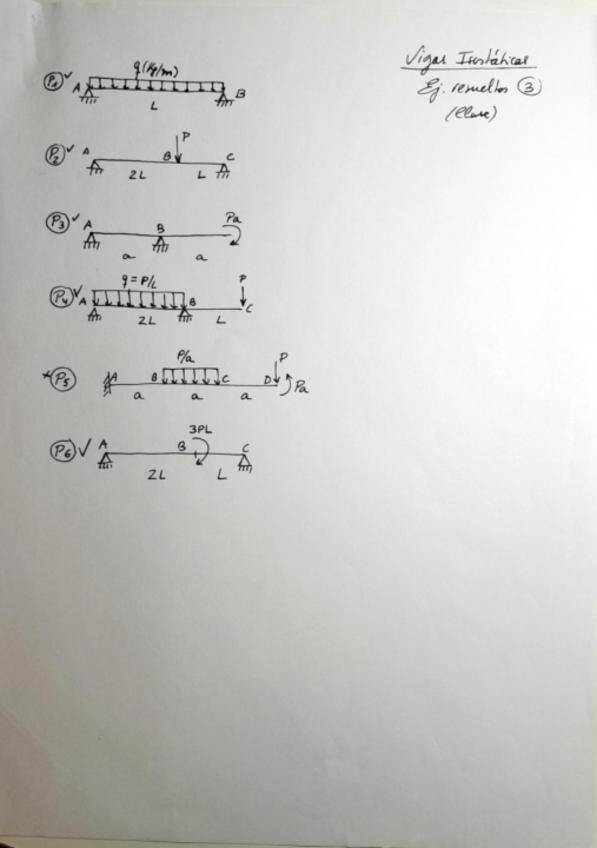 Vigas Isostáticas
Ej. resueltos 3
(Clase)
P1 ✓ q (Kg/m)
A B
L
P2 ✓ P
A B C
2L L
P3 ✓ A B Pa
a a
P4 ✓ q = P/L P
A B C
2L L
* P5 P/a P
A B C D Pa
a a a
P6 ✓ 3PL
A B C
2L L